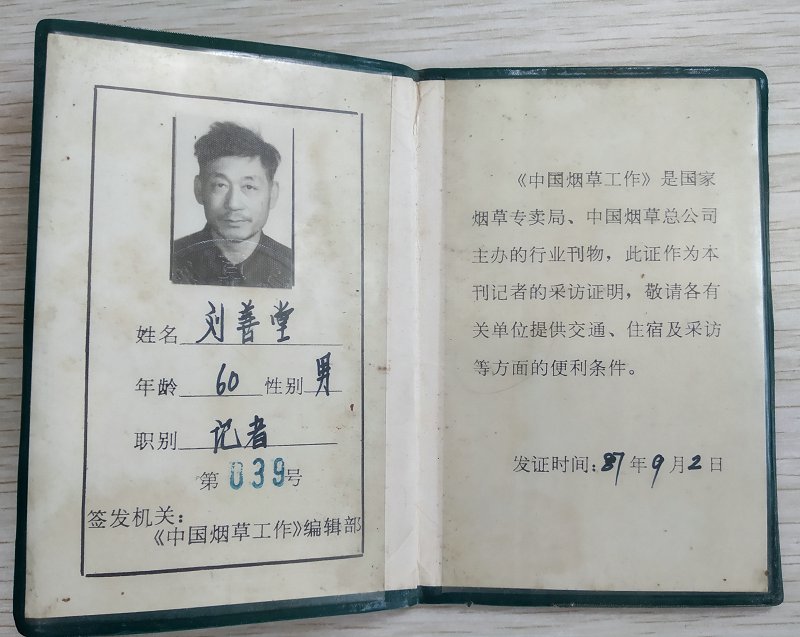 姓名 刘善堂
年龄 60 性别 男
职别 记者
第 039 号
签发机关：
《中国烟草工作》编辑部
《中国烟草工作》是国家
烟草专卖局、中国烟草总公司
主办的行业刊物，此证作为本
刊记者的采访证明，敬请各有
关单位提供交通、住宿及采访
等方面的便利条件。
发证时间：87年9月2日